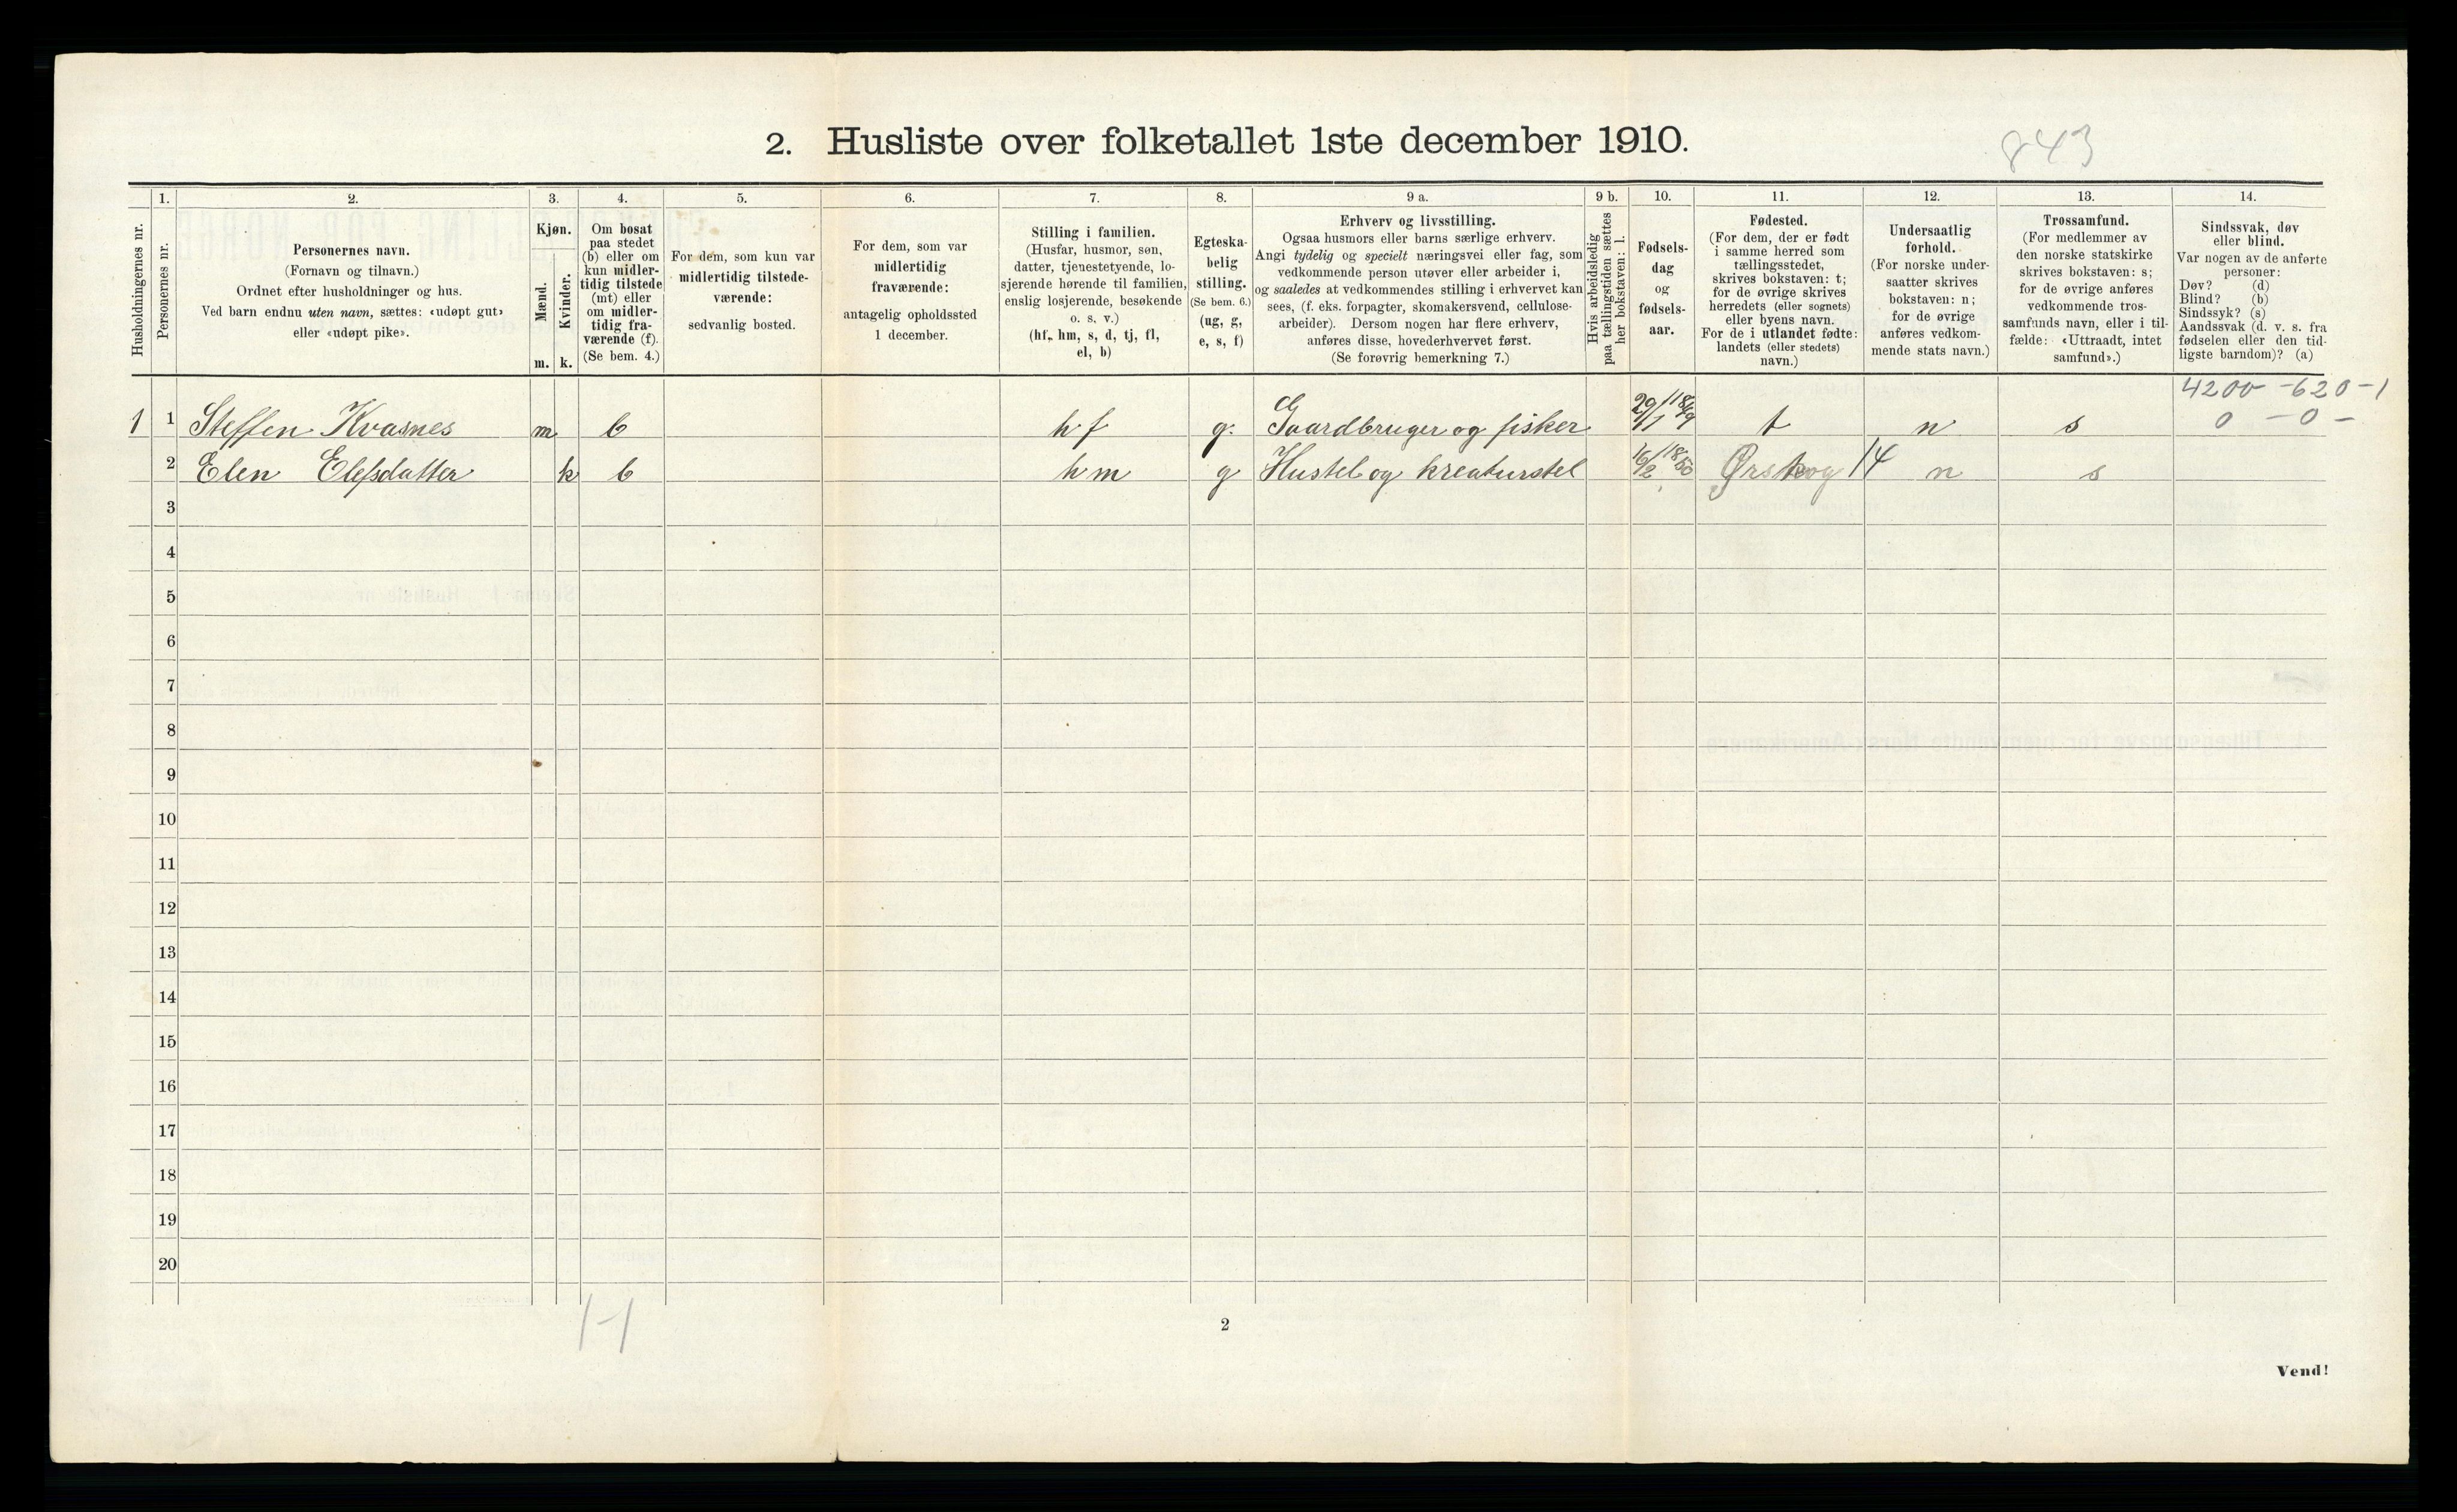 2. Husliste over folketallet 1ste december 1910.
843
1. 2. 3. 4. 5. 6. 7. 8. 9 a. 9 b. 10. 11. 12. 13. 14.
Husholdningernes nr.
Personernes nr.
Personernes navn.
(Fornavn og tilnavn.)
Ordnet efter husholdninger og hus.
Ved barn endnu uten navn, sættes: «udøpt gut»
eller «udøpt pike».
Kjøn.
Mænd.
Kvinder.
m. k.
Om bosat
paa stedet
(b) eller om
kun midler-
tidig tilstede
(mt) eller
om midler-
tidig fra-
værende (f).
(Se bem. 4.)
For dem, som kun var
midlertidig tilstede-
værende:
sedvanlig bosted.
For dem, som var
midlertidig
fraværende:
antagelig opholdssted
1 december.
Stilling i familien.
(Husfar, husmor, søn,
datter, tjenestetyende, lo-
sjerende hørende til familien,
enslig losjerende, besøkende
o. s. v.)
(hf, hm, s, d, tj, fl,
el, b)
Egteska-
belig
stilling.
(Se bem. 6.)
(ug, g,
e, s, f)
Erhverv og livsstilling.
Ogsaa husmors eller barns særlige erhverv.
Angi tydelig og specielt næringsvei eller fag, som
vedkommende person utøver eller arbeider i,
og saaledes at vedkommendes stilling i erhvervet kan
sees, (f. eks. forpagter, skomakersvend, cellulose-
arbeider). Dersom nogen har flere erhverv,
anføres disse, hovederhvervet først.
(Se forøvrig bemerkning 7.)
Hvis arbeidsledig
paa tællingstiden sættes
her bokstaven: l.
Fødsels-
dag
og
fødsels-
aar.
Fødested.
(For dem, der er født
i samme herred som
tællingsstedet,
skrives bokstaven: t;
for de øvrige skrives
herredets (eller sognets)
eller byens navn.
For de i utlandet fødte:
landets (eller stedets)
navn.)
Undersaatlig
forhold.
(For norske under-
saatter skrives
bokstaven: n;
for de øvrige
anføres vedkom-
mende stats navn.)
Trossamfund.
(For medlemmer av
den norske statskirke
skrives bokstaven: s;
for de øvrige anføres
vedkommende tros-
samfunds navn, eller i til-
fælde: «Uttraadt, intet
samfund».)
Sindssvak, døv
eller blind.
Var nogen av de anførte
personer:
Døv? (d)
Blind? (b)
Sindssyk? (s)
Aandssvak (d. v. s. fra
fødselen eller den tid-
ligste barndom)? (a)
4200 - 620 - 1
0 - 0 -
1 1 Steffen Kvasnes m b hf g. Gaardbruger og fisker 29/1 1849 t n s
2 Elen Elefsdatter k b hm g Hustel og kreaturstel 16/2 1850 Ørskog 14 n s
3
4
5
6
7
8
9
10
11
12
13
14
15
16
17
18
19
20
1-1
2
Vend!